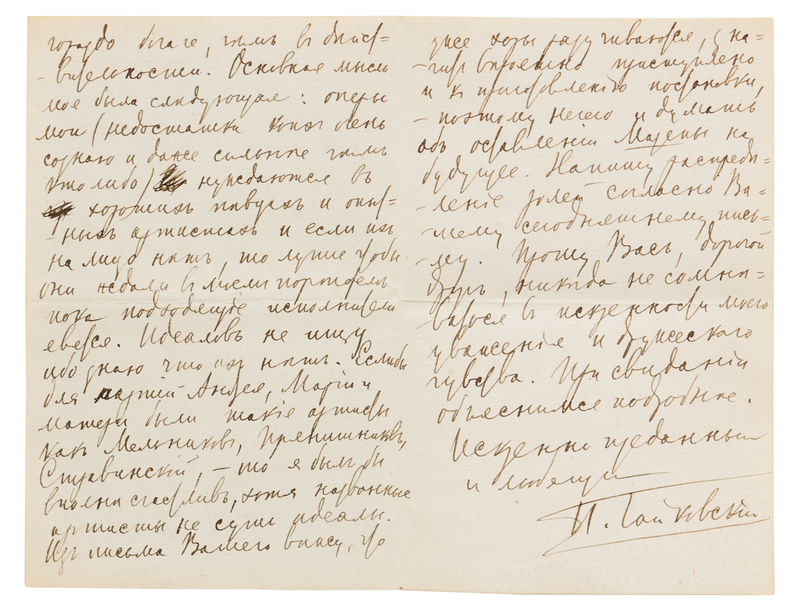 гораздо богаче, чемъ въ дѣйст-
-вительности. Основная мысль
моя была слѣдующая: оперы
мои (недостатки коихъ очень
сознаю и даже сильнѣе чѣмъ
кто либо) нуждаются въ
хорошихъ пѣвцахъ и опыт-
-ныхъ артистахъ и если ихъ
на лицо нѣтъ, то лучше чтобы
они ждали въ моемъ портфелѣ
пока подходящіе исполнители
явятся. Идеаловъ не ищу
ибо знаю что ихъ нѣтъ. Если бы
для партій Андрея, Маріи и
матери были такіе артисты
какъ Мельниковъ, Прянишниковъ,
Стравинскій, – то я былъ бы
вполнѣ счастливъ, хотя названные
артисты не суть идеалы.
Изъ письма Вашего вижу, что
уже хоры разучиваются, и на-
-
и къ приготовленію постановки,
-поэтому нечего и думать
объ оставленіи Мазепы на
будущее. Напишу распредѣ-
-леніе ролей согласно Ва-
-шему сегодняшнему пись-
-му. Прошу Васъ, дорогой
другъ, никогда не сомнѣ-
-ваться въ искренности моего
уваженія и дружескаго
чувства. При свиданіи
объяснимся подробнѣе.
Искренно преданный
и любящій
П. Чайковскій